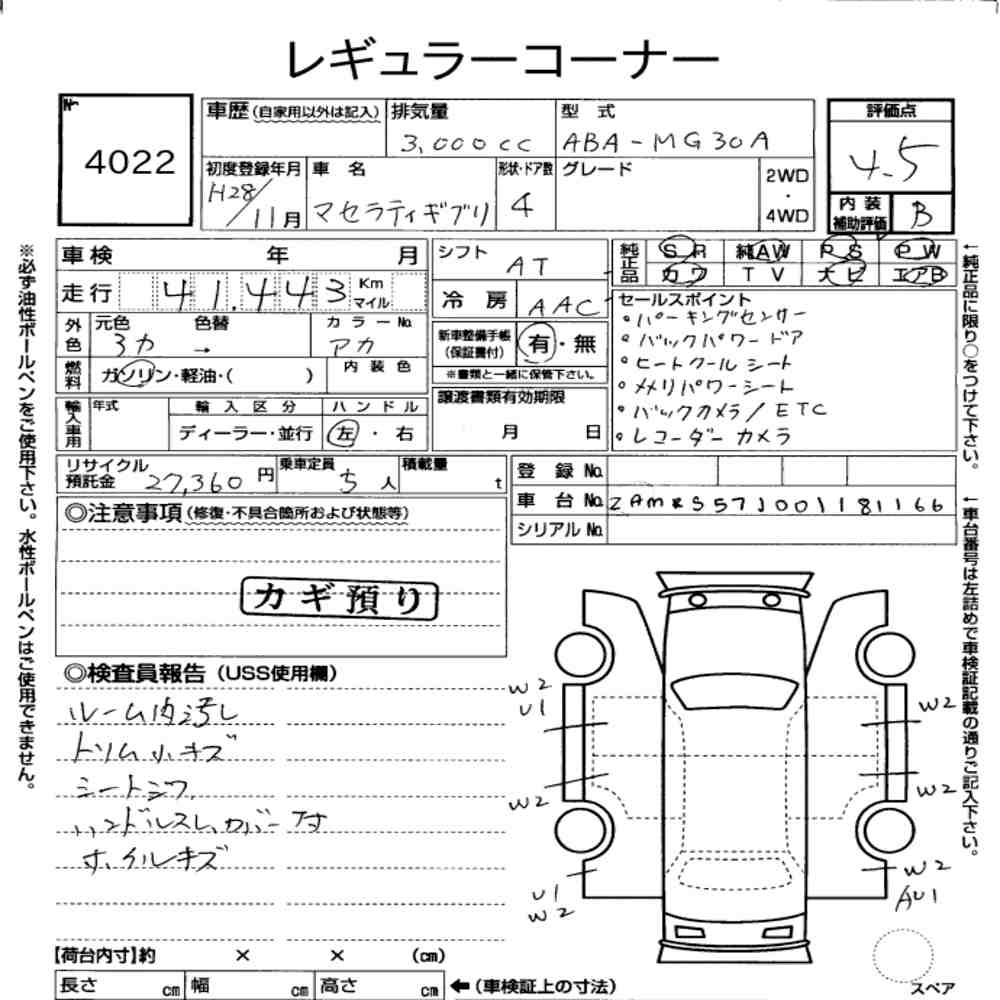 レギュラーコーナー
4022
車歴(自家用以外は記入)
排気量
3,000cc
型 式
ABA-MG30A
評価点
4.5
初度登録年月
H28/11月
車 名
マセラティギブリ
形状・ドア数
4
グレード
2WD
・
4WD
内装
補助評価
B
車検 年 月
走行 41.443 Km
マイル
シフト
AT
冷 房
AAC
純正品
SR 純AW PS PW
カワ TV ナビ エアB
外色
元色 色替
3カ →
カラーNo.
アカ
燃料
ガソリン・軽油・( )
内 装 色
新車整備手帳
(保証書付)
有・無
※書類と一緒に保管下さい。
セールスポイント
・パーキングセンサー
・バックパワードア
・ヒートクールシート
・メメリパワーシート
・バックカメラ/ETC
・レコーダーカメラ
輸入車用
年式
輸 入 区 分
ディーラー・並行
ハ ン ド ル
左 ・ 右
譲渡書類有効期限
月 日
リサイクル
預託金 27,360 円
乗車定員
5人
積載量
t
登 録 No.
車 台 No. ZAMRS57J001181166
シリアル No.
◎注意事項(修復・不具合箇所および状態等)
カギ預り
◎検査員報告(USS使用欄)
ルーム内汚し
トリム小キズ
シートシワ
ハンドルスレ、カバー付
ホイルキズ
W2
U1
W2
W2
W2
U1
W2
W2
AU1
スペア
【荷台内寸】約 × × (cm)
長さ cm 幅 cm 高さ cm ←(車検証上の寸法)
※必ず油性ボールペンをご使用下さい。水性ボールペンはご使用できません。
←純正品に限り○をつけて下さい。
←車台番号は左詰めで車検証記載の通りご記入下さい。